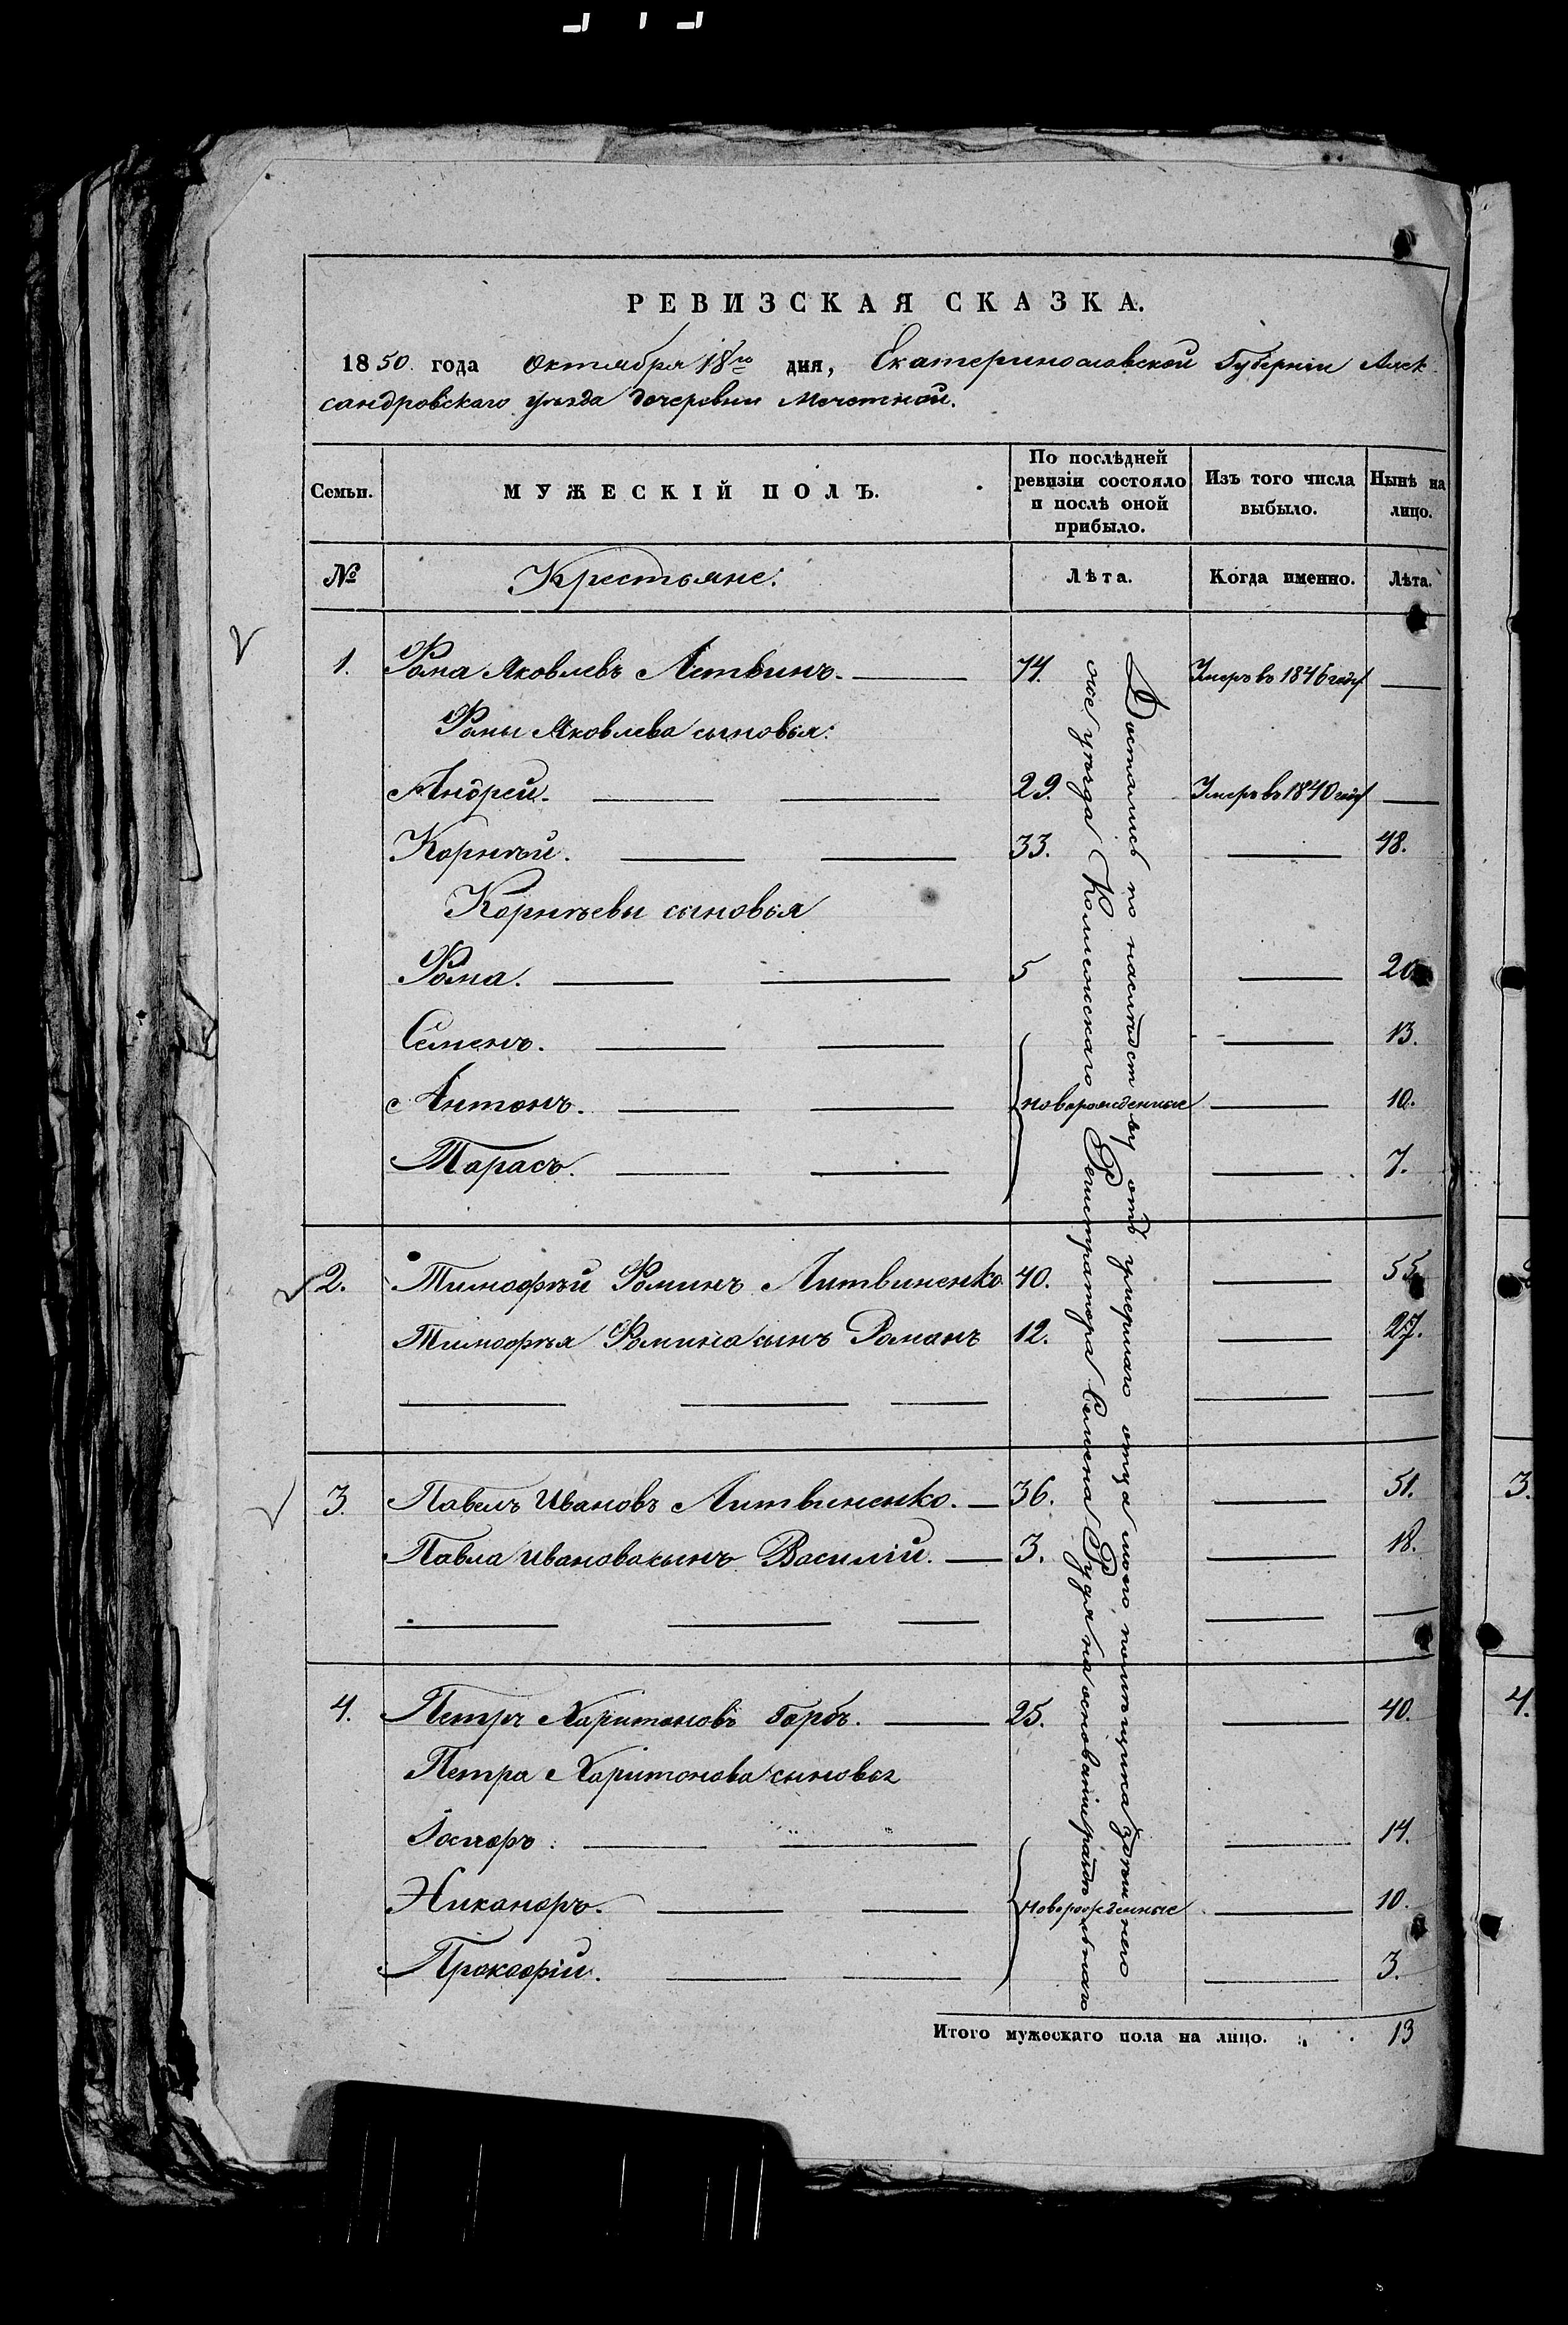 РЕВИЗСКАЯ СКАЗКА.
1850. года Октября 18го дня, Екатеринославской Губерніи Алек-
сандровскаго уѣзда деревни Мечетной.
Семьи. МУЖЕСКІЙ ПОЛЪ. По послѣдней ревизіи состояло и послѣ оной прибыло. Изъ того числа выбыло. Нынѣ на лицо.
№ Крестьяне. Лѣта. Когда именно. Лѣта.
1. Фома Яковлевъ Летвинъ. 74. Умеръ въ 1846 году
Фомы Яковлева сыновья:
Андрей. 29. Умеръ въ 1840 году
Корнѣй. 33. 48.
Корнѣевы сыновья
Фома. 5 20.
Семенъ. 13.
Антонъ. новорожденные 10.
Тарасъ. 7.
2. Тимофѣй Фоминъ Литвиненко 40. 55.
Тимофѣя Фомина сынъ Романъ 12. 27.
3. Павелъ Ивановъ Литвиненко. 36. 51.
Павла Иванова сынъ Василій. 3. 18.
4. Петръ Харитоновъ Горбъ. 25. 40.
Петра Харитонова сыновья
14.
Никаноръ. новорожденные 10.
Прокофій. 3.
Достались по наслѣдству отъ умершаго отца моего, помѣщика здѣшнего
же уѣзда Колежскаго Регистратора Семена Рудя на основаніи раздѣльнаго
Итого мужескаго пола на лицо. 13
3.
4.